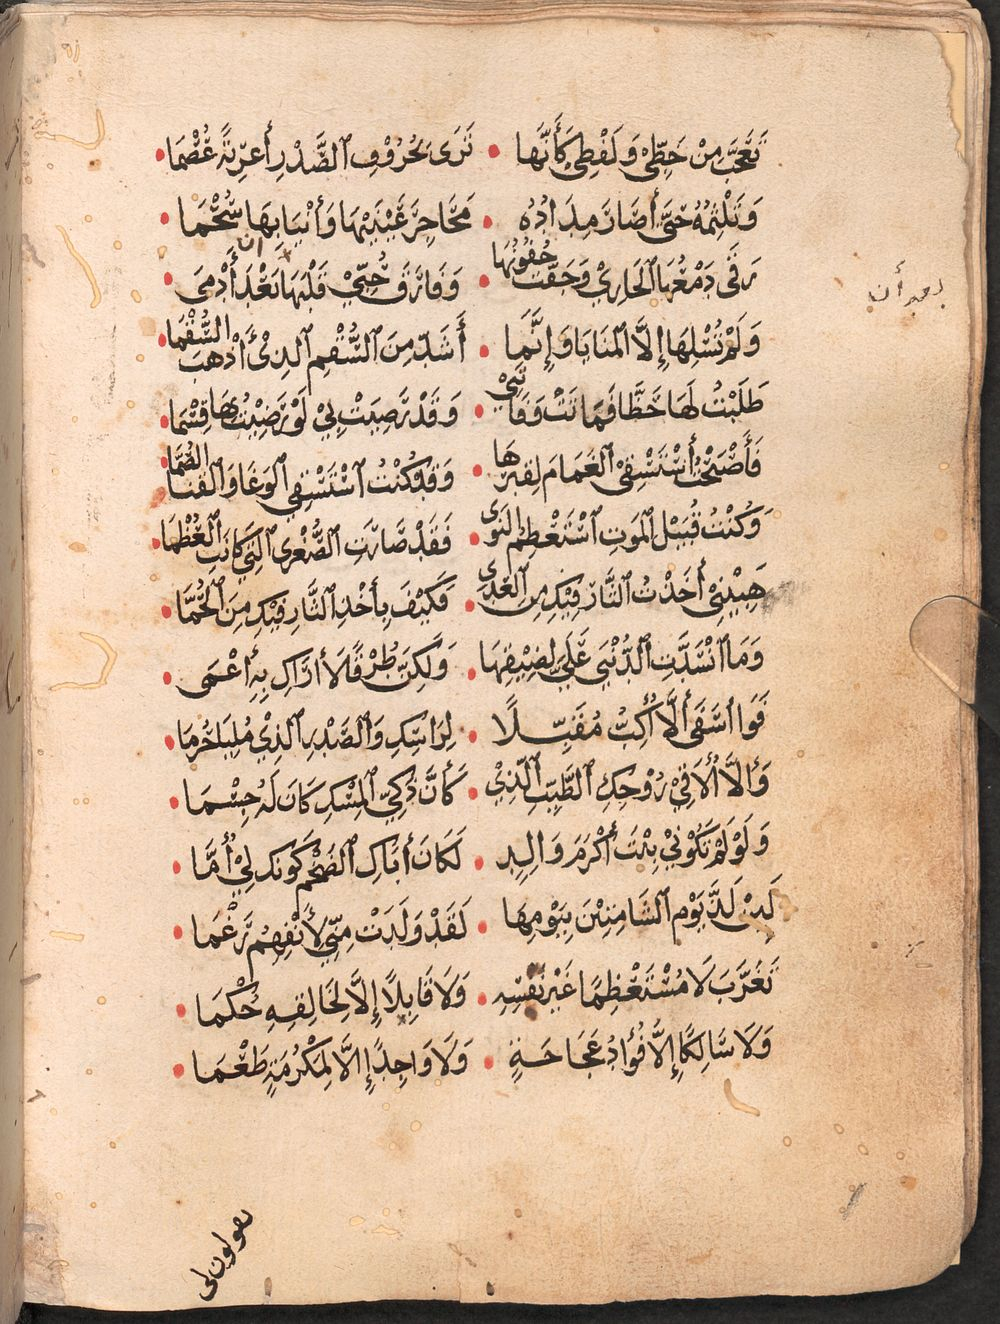 تَعَجَّبُ مِنْ خَطِّيْ وَلَفْظِيْ كَأَنَّهَا • تَرَى بِحُرُوْفِ ٱلصَّدْرِ أَغْرِبَةً عُصْمَا
وَتَلْثِمُهُ حَتَّى أَصَارَ مِدَادُهُ • مَحَاجِرَ عَيْنَيْهَا وَأَنْيَابِهَا سُحْمَا
رَقَى دَمْعُهَا ٱلْجَارِيْ وَجَفَّتْ جُفُوْنُهَا • وَفَارَقَ حُبِّيْ قَلْبَهَا بَعْدَ أَدْمَى
ان
بعد أن
وَلَمْ تُسْلِهَا إِلَّا ٱلْمَنَايَا وَإِنَّمَا • أَشَدُّ مِنَ ٱلسُّقْمِ ٱلَّذِيْ أَذْهَبَ السُّقْمَا
طَلَبْتُ لَهَا حَظًّا فَمَاتَتْ وَفَاتَنِيْ • وَقَدْ رَضِيَتْ بِيْ لَوْ رَضِيْتُ بِهَا قِسْمَا
فَأَصْبَحْتُ أَسْتَسْقِيْ ٱلْغَمَامَ لِقَبْرِهَا • وَقَدْ كُنْتُ ٱسْتَسْقِي ٱلْوَغَا وَٱلْقَنَا الصُّمَّا
وَكُنْتُ قُبَيْلَ ٱلْمَوْتِ ٱسْتَعْظِمُ النَوَى • فَقَدْ صَارَتِ ٱلصُّغْرَى ٱلَّتِيْ كَانَتِ ٱلْعُظْمَا
هَبِيْنِيْ أَخَذْتُ ٱلثَّارَ فِيْكِ مِنَ ٱلْعِدَى • فَكَيْفَ بِأَخْذِ ٱلثَّارِ فِيْكِ مِنَ ٱلْحُمَّا
وَمَا ٱنْسَدَّتِ ٱلدُّنْيَى عَلَيَّ لِضِيْقِهَا • وَلَكِنَّ طَرْفًا لَا أَرَاكِ بِهِ أَعْمَى
فَوَا أَسَفَى أَلَّا أُكِبَّ مُقَبِّلًا • لِرَاسِكِ وَٱلصَّدْرِ ٱلَّذِيْ مُلِيَا حَزْمَا
وَأَلَّا أُلَاقِيْ رُوْحَكِ ٱلطَّيِّبَ ٱلَّذِيْ • كَأَنَّ ذَكِيَّ ٱلْمِسْكِ كَانَ لَهُ جِسْمَا
وَلَوْ لَمْ تَكُوْنِيْ بِنْتَ أَكْرَمِ وَالِدٍ • لَكَانَ أَبَاكِ ٱلضَّخْمَ كَوْنُكِ لِيْ أُمَّا
لَئِنْ لَذَّ يَوْمُ ٱلشَّامِتِيْنَ بِيَوْمِهَا • لَقَدْ وَلَدَتْ مِنِّيْ لِأَنْفِهِمِ رَغْمَا
تَغَرَّبَ لَا مُسْتَعْظِمًا غَيْرَ نَفْسِهِ • وَلَا قَابِلًا إِلَّا لِخَالِقِهِ حُكْمَا
وَلَا سَالِكًا إِلَّا فُؤَادَ عَجَاجَةٍ • وَلَا وَاجِدًا إِلَّا لِمَكْرُمَةٍ طَعْمَا
يقولون لي